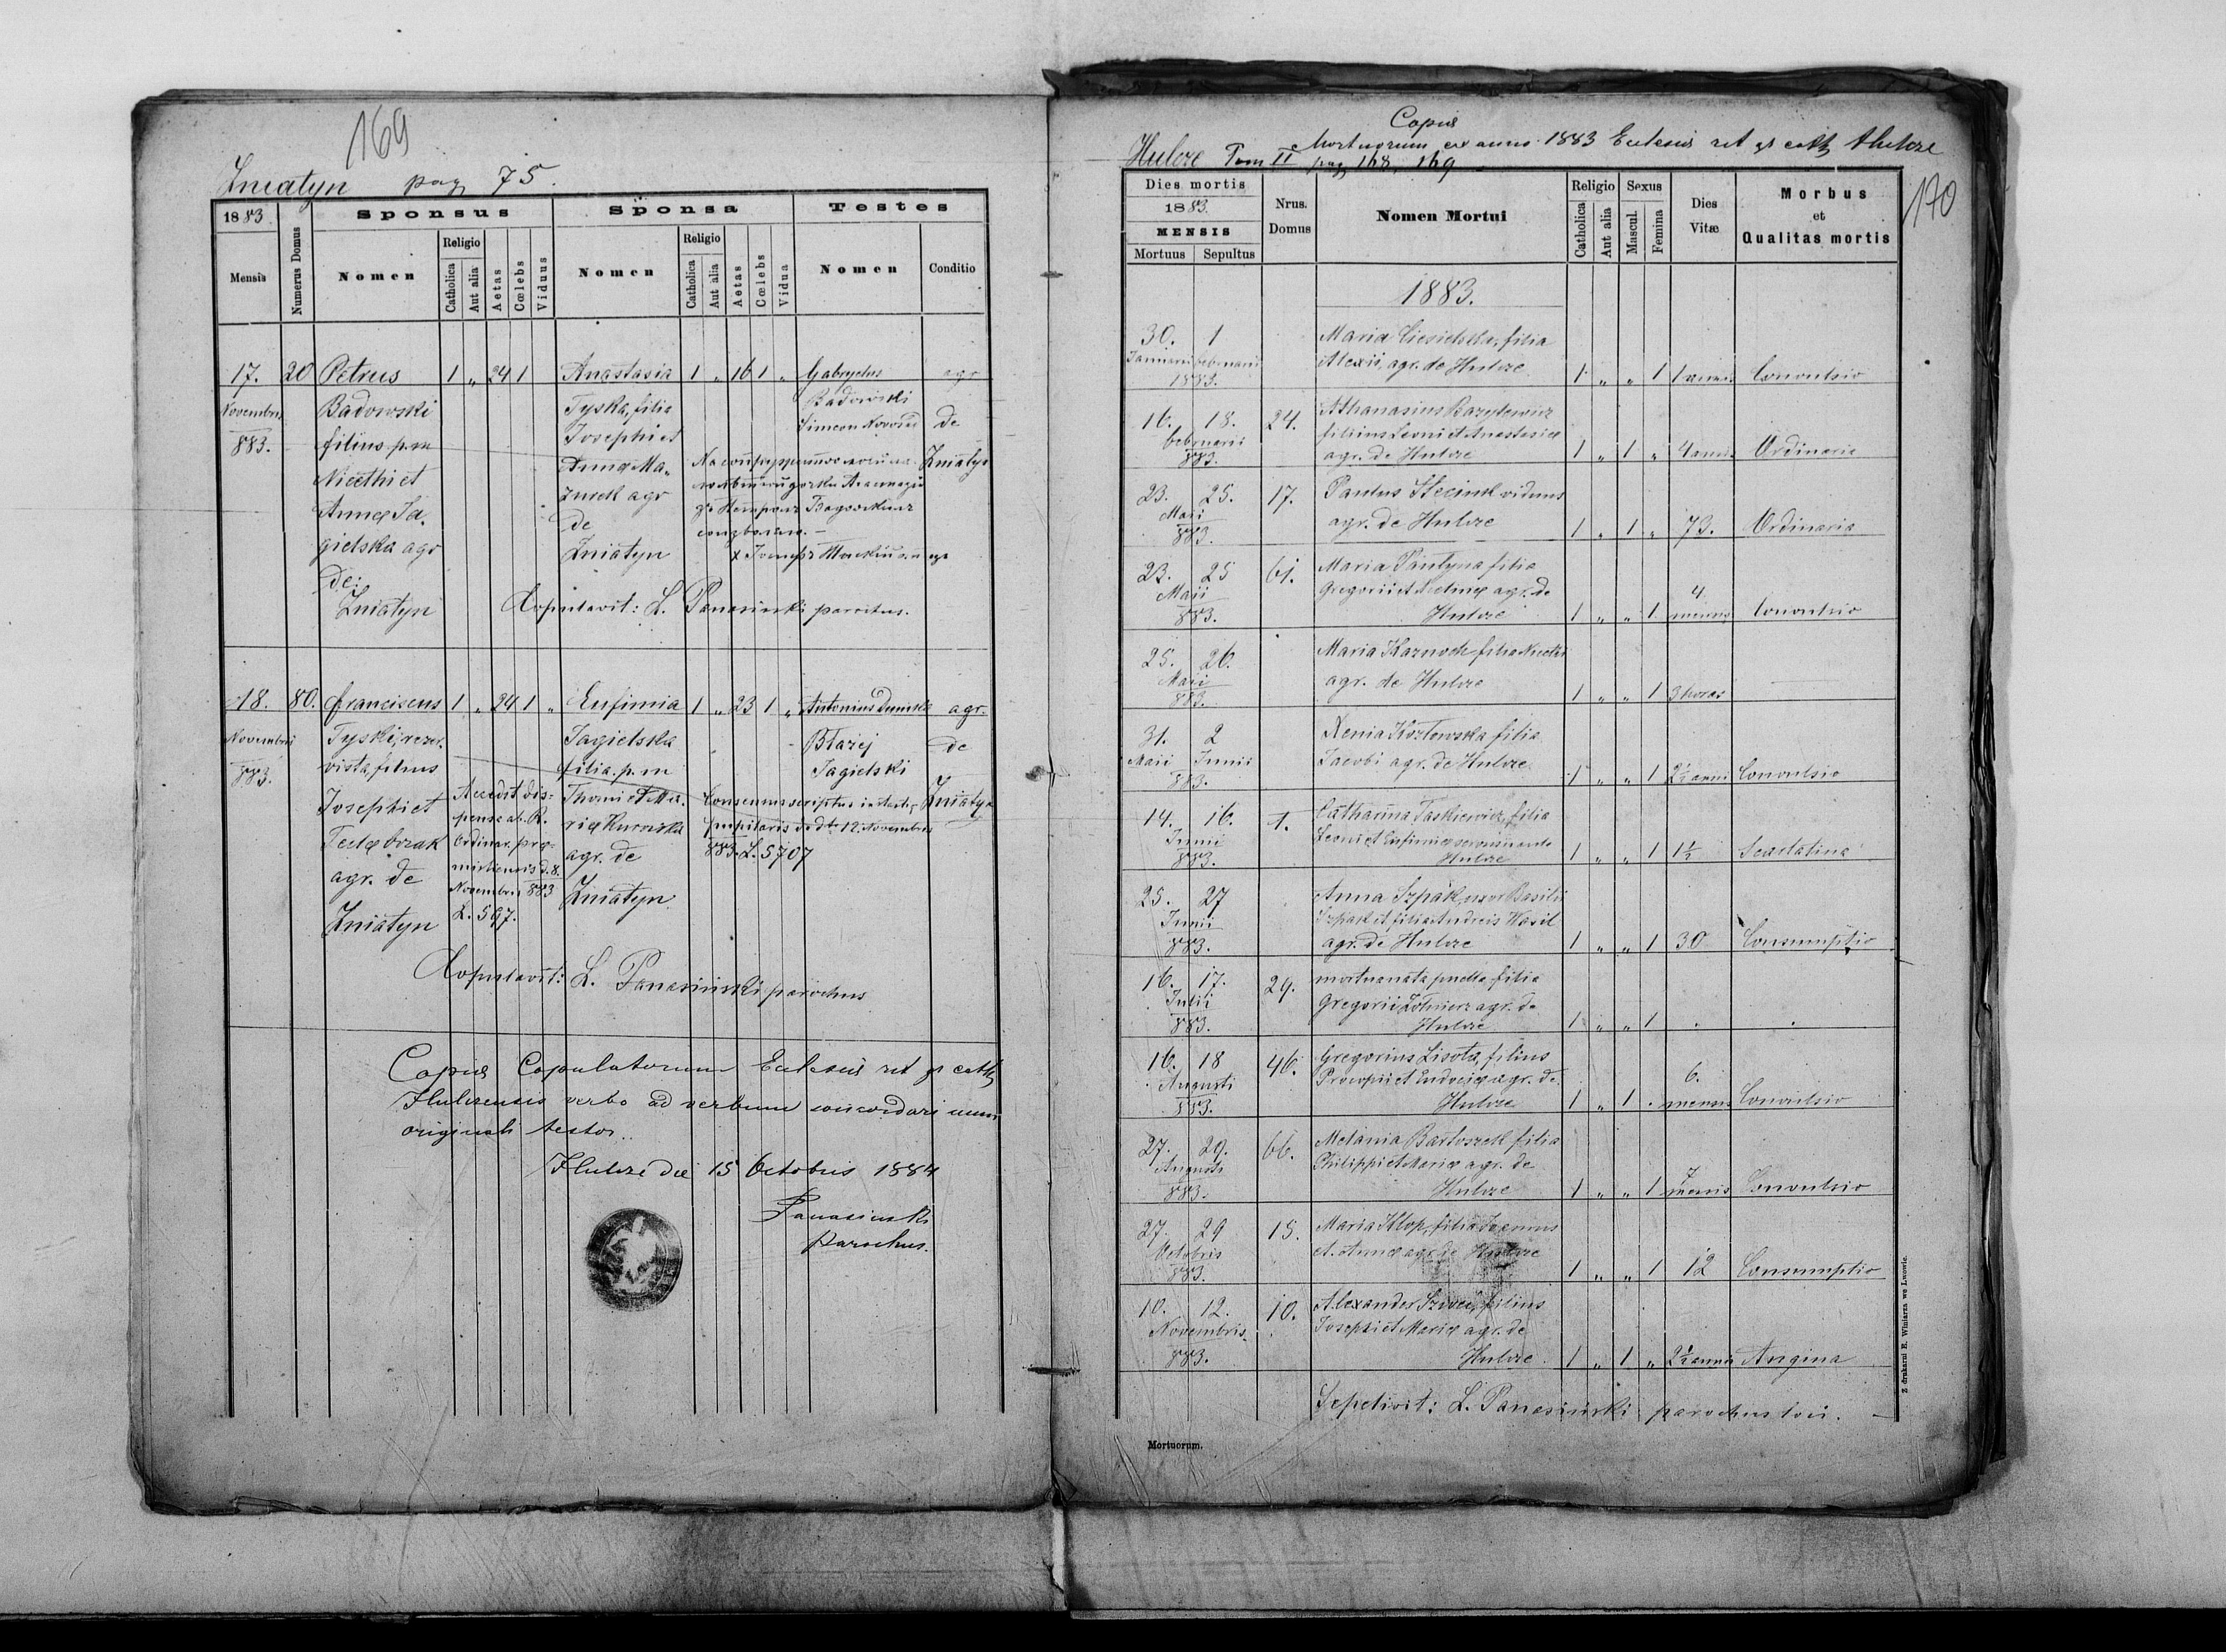 169
Zniatyn pag 75.
1883
Sponsus
Sponsa
Testes
Mensis
Numerus Domus
Nomen
Religio
Catholica
Aut alia
Aetas
Cœlebs
Viduus
Nomen
Religio
Catholica
Aut alia
Aetas
Cœlebs
Vidua
Nomen
Conditio
17. 20 Petrus 1 „ 24 1 Anastasia 1 „ 16 1 „ Gabryelus agr
Novembris Badowski Tyska, filia Badowski
883. filius p. m Josephi et Simeon de
Nicethi et Annæ Ma„ Zniatyn
Annæ Ja„ zurek agr
gielska agr de
de: Zniatyn
Zniatyn
Copulavit: L. Panasinski parochus.
18. 80. Franciscus 1 „ 24 1 „ Eufimia 1 „ 23 1 „ Antonius agr.
Novembris Tyski, reser. Jagielska Błażej de
883. vista, filius filia p. m Jagielski
Josephi et Thomi et Ma. Zniatyn
Teclæ agr. de
agr. de Zniatyn
Zniatyn
Accedit dis-
pensa ab. R.
Ordinar. præ-
misliensis d. 8.
Novembris 883
L. 597.
Consensus scriptus
pupilaris de dto 12. Novembris
883. L. 5707
Copulavit: L. Panasinski parochus
Copia Copulatorum Eclesiæ rit gr cath
Hulczensis verbo ad verbum concordari cum
originali testor.
Hulcze die 15 Octobris 1884
Panasinski
parochus.
Copia
Mortuorum ex anno 1883 Eclesiæ rit gr cath Hulcze
Hulcze Tom II pag 168, 169
170
Dies mortis
1883.
MENSIS
Mortuus
Sepultus
Nrus.
Domus
Nomen Mortui
Religio
Catholica
Aut alia
Sexus
Mascul.
Femina
Dies
Vitæ
Morbus
et
Qualitas mortis
1883.
30. 1 Maria Ciesielska, filia
Januarii Februarii Alexii, agr. de Hulcze 1 „ „ 1 1 annis Convulsio
1883.
16. 18. 24. Athanasius Bazylewicz
Februarii filius Leoni et Anastasiæ
883. agr. de Hulcze 1 „ 1 „ 4 annis Ordinaria
23. 25. 17. Paulus viduus
Maii agr. de Hulcze 1 „ 1 „ 73. Ordinaria
883.
23. 25 61. Maria Pantyna filia
Maii Gregorii et agr. de
883. Hulcze 1 „ „ 1 4 mensis Convulsio
25. 26. Maria Karnoch filia
Maii agr. de Hulcze 1 „ „ 1 3 horas
883.
31. 2 Xenia Kozłowska filia
Maii Junii Jacobi agr. de Hulcze 1 „ „ 1 2½ anni Convulsio
883.
14. 16. 1. Catharina Taskiewicz, filia
Junii Leoni et Eufimiæ
883. Hulcze 1 „ „ 1 1½ Scarlatina
25. 27 Anna Szpak, uxor Basilii
Junii Szpak et filia Andreis Wasil
883. agr. de Hulcze 1 „ „ 1 30 Consumptio
16. 17. 29. mortua nata puella, filia
Julii Gregorii Żołnierz agr. de
883. Hulcze 1 „ „ 1 . .
16. 18 46. Gregorius Lisota, filius
Augusti Procopii et Eudociæ agr. de
883. Hulcze 1 „ 1 . 6. mensis Convulsio
27. 29. 66. Melania Bartoszek filia
Augusti Philippi et Mariæ agr. de
883. Hulcze 1 „ „ 1 7 mensis Convulsio
27. 29 15. Maria Kłop, filia Joannis
Octobris et Annæ agr. de Hulcze
883. 1 „ „ 1 12 Consumptio
10. 12. 10. Alexander filius
Novembris. Josephi et Mariæ agr. de
883. Hulcze. 1 „ 1 „ 2½ annis Angina
Sepelivit: L. Panasinski parochus loci.
Mortuorum.
Z drukarni E. Winiarza we Lwowie.